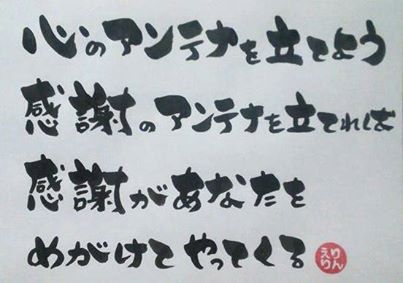 心のアンテナを立てよう
感謝のアンテナを立てれば
感謝があなたを
めがけてやってくる
えりりん